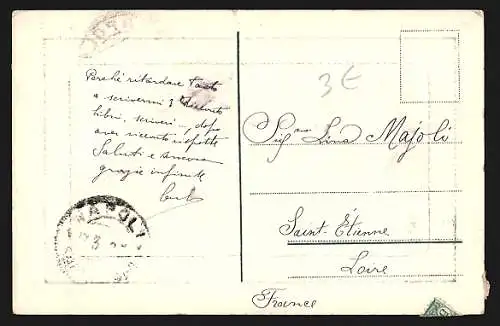 Perché ritardare tanto
a scrivermi?
libri, scrivi, dopo
aver ricevuto
Saluti e ancora
grazie infinite
3 €
Sig.na Lina Majoli
Saint-Étienne
Loire
France
NAPOLI